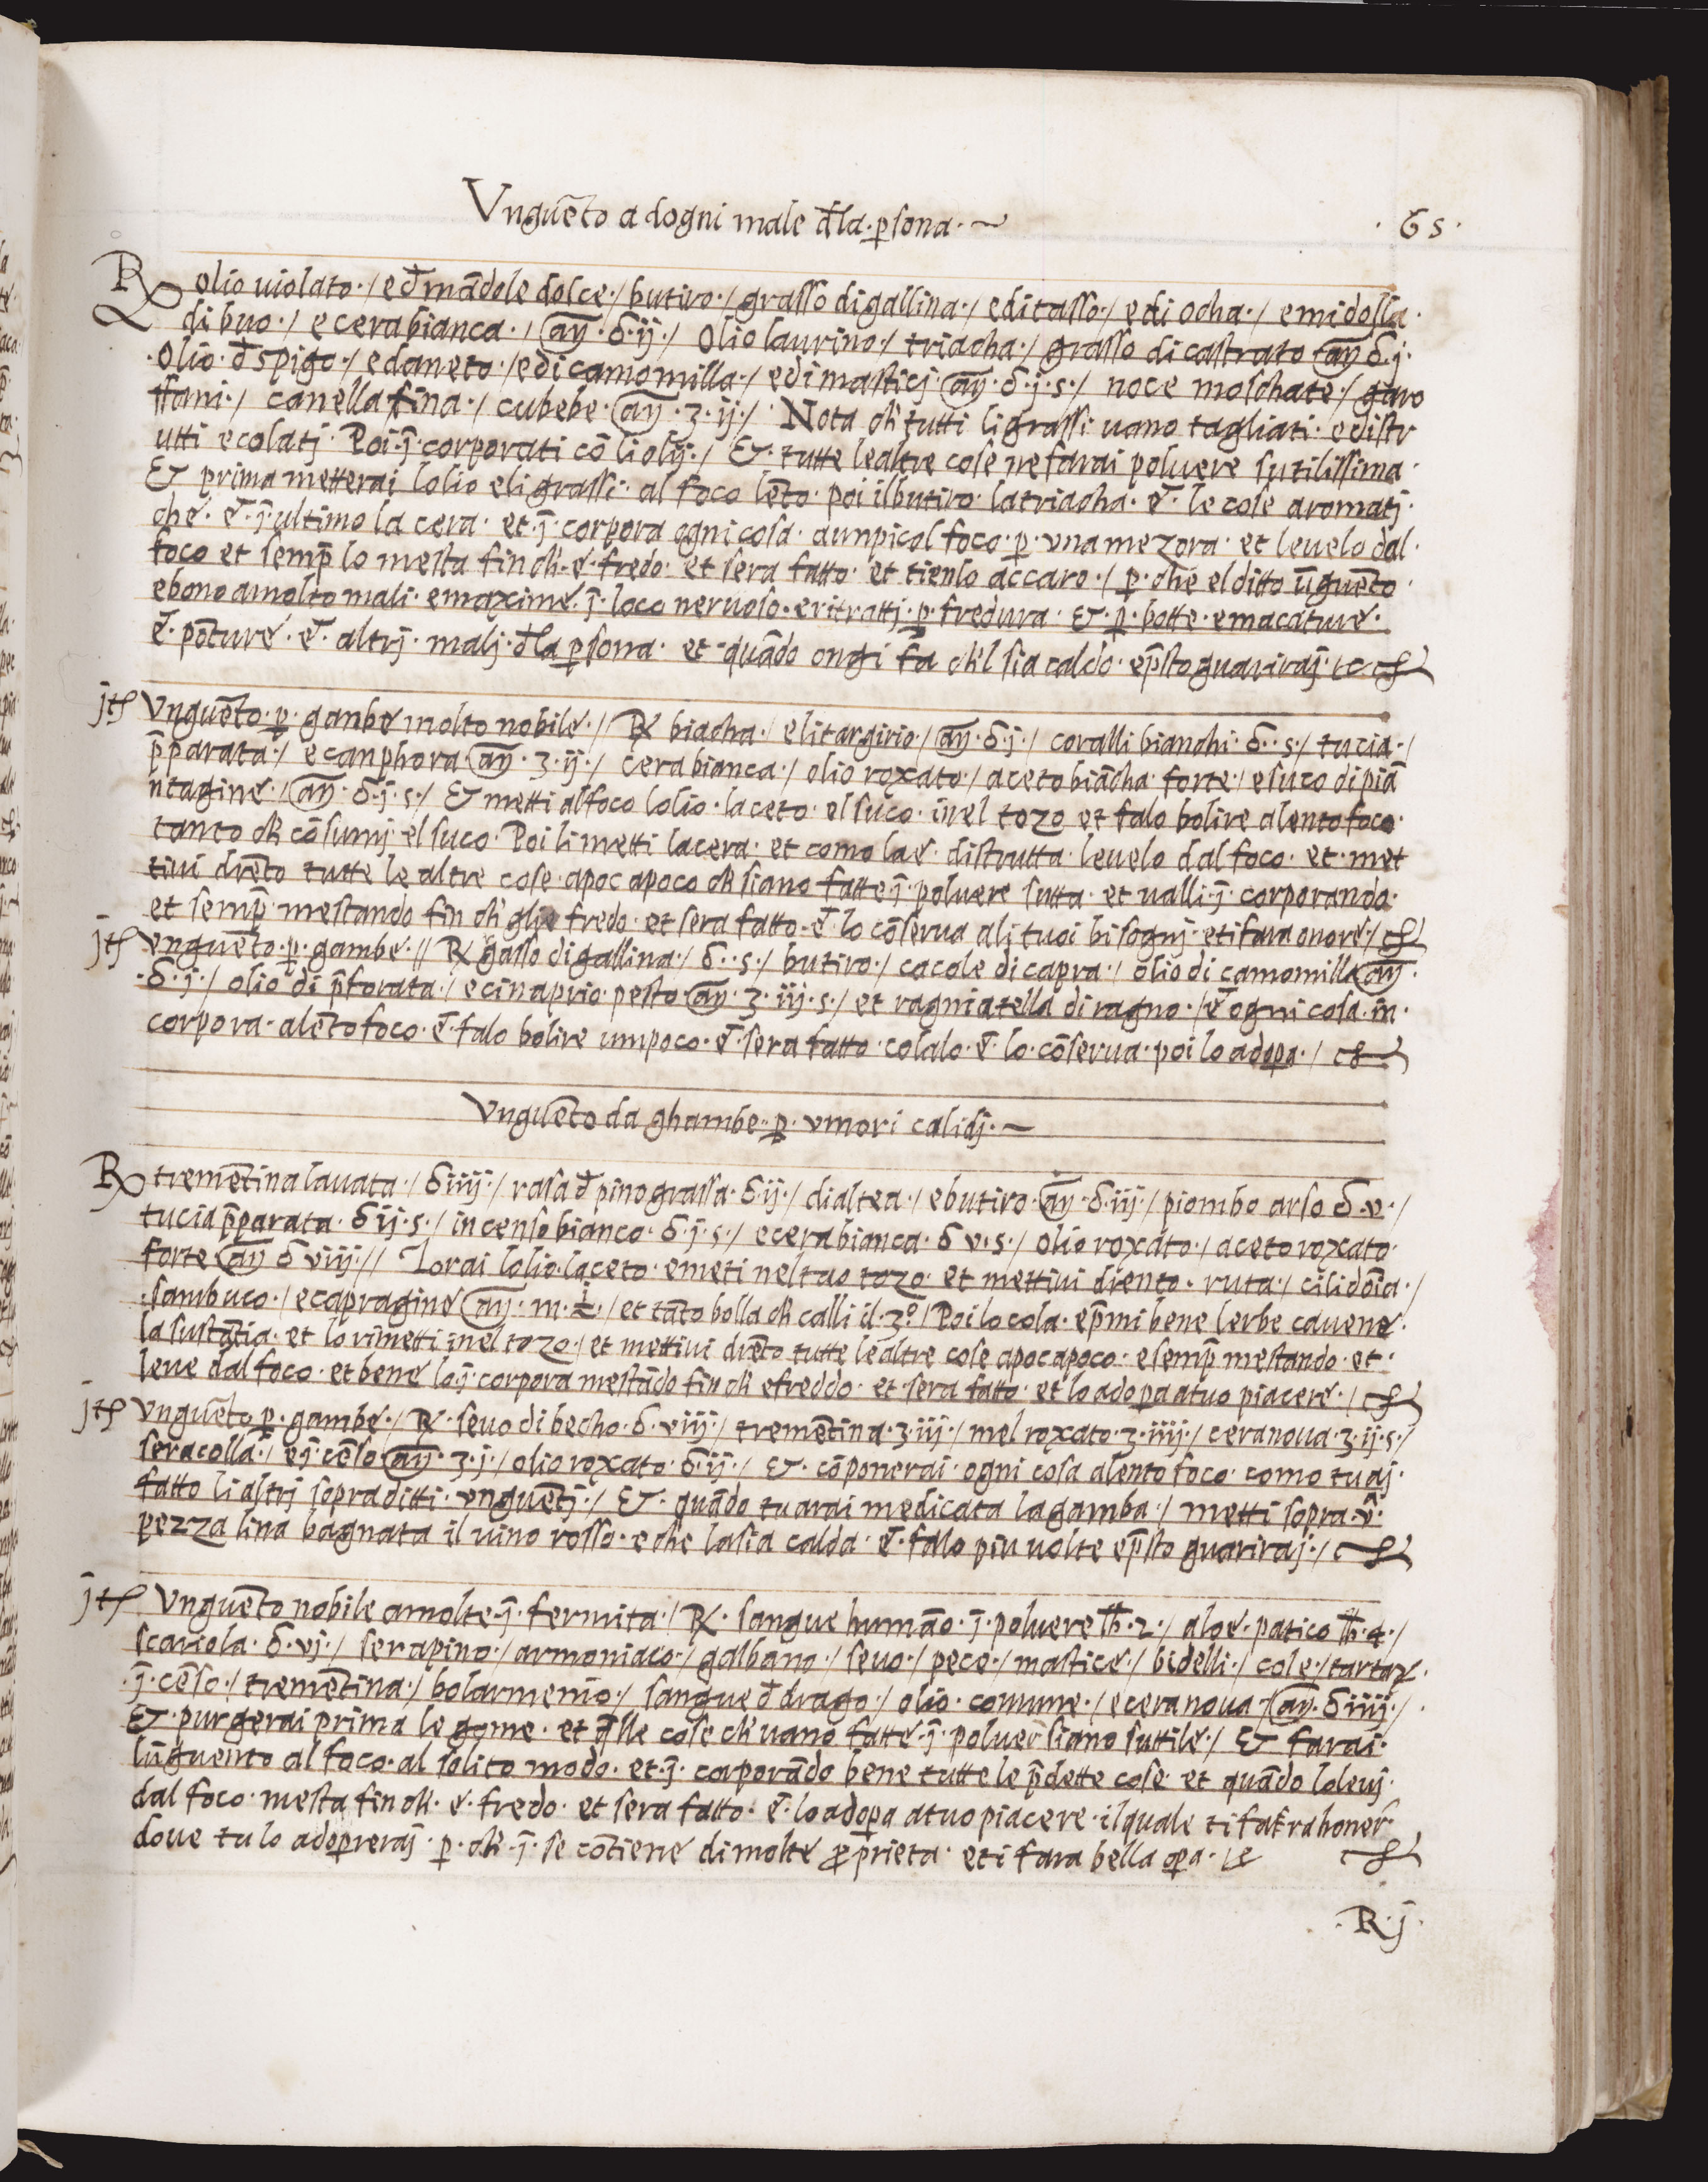 Vnguēto a dogni male d̄la · p̱sona · ~
· 65 ·
R̵ olio uiolato · / ed̄ mādole dolce · / butiro · / grasso di gallina · / editasso · / edi ocha · / emidolla ·
di buo · / ecera bianca · / aῆ · δ · ij · / olio laurino · / triacha · / grasso di castrato aῆ δ · j ·
· olio · d̄ spigo · / edaneto · / edi camomilla · / edi masticj · aῆ · δ · j · s · / noce moschate · / garo
ffani · / canella fina · / cubebe · aῆ · ʒ · ij · / · Nota ch̄ tutti li grassi uano tagliati · edistr
utti ecolatj · Poi · j̄ · corporati cō li olij · / & · tutte le altre cose ne farai poluere sutilissima ·
& prima metterai lolio eli grassi · al foco lēto · poi il butiro · la triacha · e̅ · le cose aromatj ·
che · e̅ · j̄ ultimo la cera · et · j̄ · corpora ogni cosa · aunpicol foco · p̱ · vna mezora · et leuelo dal ·
foco et semp̄ lo mesta fin ch̄ · e · fredo · et sera fatto · et tienlo accaro · / p̱ · che el ditto ūguēto ·
ebono amolto mali · emaxime · j̄ · loco neruoso · eritrattj · p̱ · fredura · & · p̱ · botte · emacature ·
e̅ · pōture · e̅ · altrj · malj · d̄la p̱sona · et quādo ongi fa ch̄l sia caldo · ep̄sto guariraj ·
jtɟ Vnguēto · p̱ · ganbe molto nobile · / R̵ biacha · / elitargirio · / aῆ · δ · j · / coralli bianchi · δ · · s · / tucia · /
p̄parata · / ecanphora aῆ · ʒ · ij · / cera bianca · / olio roxato · / aceto biācha forte · / esuco di piā
ntagine · / aῆ · δ · j · s · / & metti al foco lolio · laceto · el suco · inel tozo et falo bolire alento foco ·
tanto ch̄ cōsumj · el suco · Poi li metti la cera · et como la e · distrutta · leuelo dal foco · et · met
tiui drēto tutte le altre cose · apoc apoco ch̄ siano fatte j̄ · poluere sutta · et ualli · j̄ · corporando ·
et semp̄ · mestando fin ch̄ glie fredo · et sera fatto · e̅ · lo cōserua ali tuoi bisognj · eti fara onore · /
jtɟ vnguēto · p̱ · gambe · // R̵ gasso di gallina · / δ · · s · / butiro · / cacole di capra · / olio di camomilla aῆ ·
· δ · j · / olio di p̄forata · / ecinaprio · pesto aῆ · ʒ · iij · s · / et ragniatella di ragno · / e̅ ogni cosa · in ·
corpora · alēto foco · e̅ · falo bolire unpoco · e̅ · sera fatto · colalo · e̅ · lo · cōserua · poi lo adop̱a · /
Vnguēto da ghambe · p̱ · vmori calidj · ~
R̵ tremētina lauata · / δ iiij · / rasa d̄ pino grassa · δ · ij · / dialtea · / ebutiro · aῆ · δ · iij · / piombo arso δ · v · /
tucia p̄parata · δ ij · s · / incenso bianco · δ · j · s · / ecera bianca · δ v · s · / olio roxato · / aceto roxato ·
forte aῆ δ viij · // Torai lolio · laceto · emeti nel tuo tozo · et mettiui drento · ruta · / cilidōia · /
· sambuco · / ecapragine aῆ · m · ½ · / et tāto bolla ch̄ calli il · 3º · / Poi lo cola · ep̄mi bene lerbe cauene ·
la sustātia · et lo rimetti inel tozo · / et mettiui drēto tutte le altre cose apoc apoco · esemp̄ mestando · et ·
leue dal foco · et bene lo · j̄ · corpora mestādo fin ch̄ efreddo · et sera fatto · et lo adop̱a atuo piacere · /
jtɟ Vnguēto p̱ · gambe · / R̵ · seuo di becho · δ · viij · / tremētina · ʒ · iij · / mel roxato · ʒ · iiij · / cera noua · ʒ · ij · s · /
seracolla · / ej̄ cēso · aῆ · ʒ · j · / olio roxato · δ · ij · / & · cōponerai · ogni cosa alento foco · como tu aj ·
fatto li altrj sopraditti · vnguētj · / & · quādo tu arai medicata la gamba · / metti sopra · v̄ ·
pezza lina bagnata il uino rosso · eche la sia calda · e̅ · falo piu uolte ep̄sto guariraj · /
jtɟ Vnguēto nobile amolte · j̄ · fermita · / R̵ · sangue humāo · j̄ · poluere lb · 2 · / aloe · patico lb · 4 · /
scariola · δ · vj · / serapino · / armoniaco · / galbano · / seuo · / pece · / mastice · / bidelli · / cole · / tartaꝛ ·
· j̄ · cēso · / tremētina · / bolarmenio · / sangue d̄ drago · / olio · comune · / ecera noua · / aῆ · δ iiij · /
& · purgerai prima le gome · et q̄lle cose ch̄ uano fatte · j̄ · poluer̄ siano suttile · / & farai ·
lūguento al foco · al solito modo · et · j̄ · corporādo bene tutte le p̄dette cose · et quādo lo leuj ·
dal foco · mesta fin ch̄ · e · fredo · et sera fatto · e̅ · lo adop̱a atuo piacere · il quale ti honor̄
doue tu lo adop̱eraj · p̱ · ch̄ · j̄ · se cōtiene di molte ꝓprieta · eti fara bella op̱a ·
· R · j ·